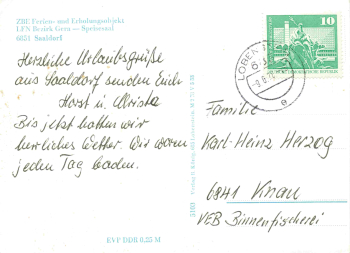 ZBE Ferien- und Erholungsobjekt
LFN Bezirk Gera — Speisesaal
6851 Saaldorf
Herzliche Urlaubsgrüße
aus Saaldorf senden Euch
Horst u. Christa
Bis jetzt hatten wir
herrliches Wetter. Wir waren
jeden Tag baden.
EVP DDR 0.25 M
10
LOBEN
Familie
Karl-Heinz Herzog
6841 Knau
VEB Binnenfischerei